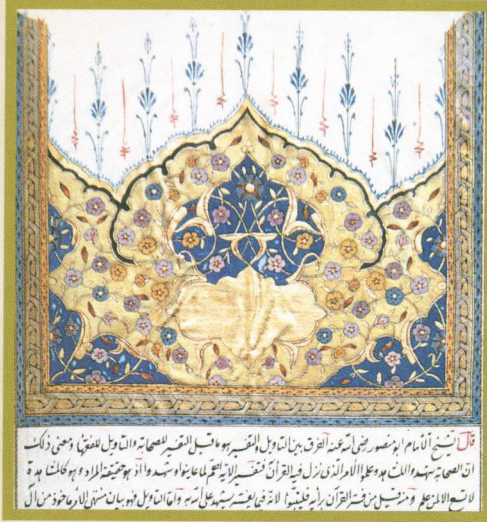 قال الشيخ الامام ابو منصور رضي الله عنه الفرق بين التاويل والتفسير هو ما قيل التفسير للصحابة والتاويل للفقهاء ومعنى ذلك
ان الصحابة شهدوا المشاهد وعلموا الامر الذي نزل فيه القرآن فتفسير الآية اهم لما عاينوا وشهدوا اذ هو حقيقة المراد وهو كالمشاهدة
لا تسمع الا لمن علم ومنه قيل من فسر القرآن برأيه فليتبوأ لانه فيما يفسر يشهد على الله به واما التاويل فهو بيان منتهى الامر مأخوذ من آل